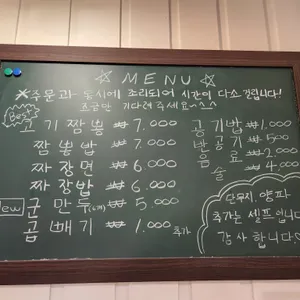 ☆ MENU ☆
※주문과 동시에 조리되어 시간이 다소 걸립니다!
조금만 기다려 주세요~^^
Best
고기짬뽕 ₩7.000 공기밥 ₩1.000
짬뽕밥 ₩7.000 반공기 ₩500
짜장면 ₩6.000 음료 ₩2.000
짜장밥 ₩6.000 술 ₩4.000
New 군만두(6개) ₩5.000
곱빼기 ₩1.000 추가
단무지, 양파
추가는 셀프입니다
감사합니다♡